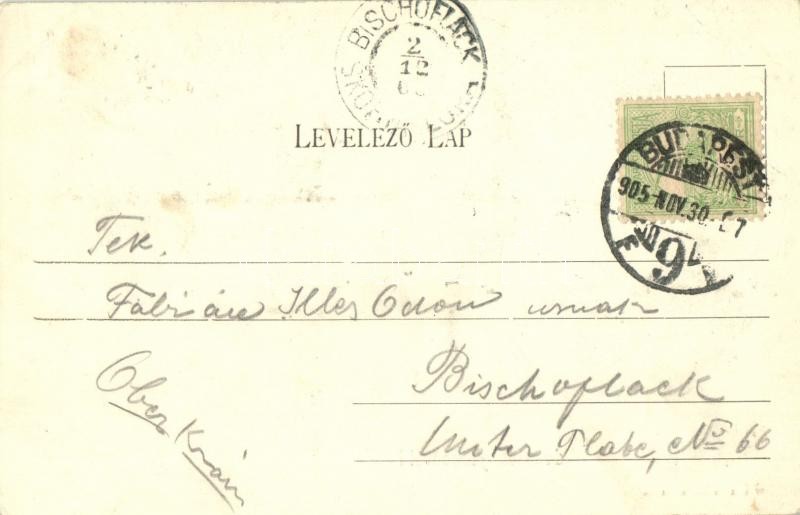 BISCHOFLACK
2
12
ŠKOFJA LOKA
LEVELEZŐ LAP
BUDAPEST
905 NOV. 30.
6
Tek.
Fábián Illés Ödön urnak
Bischoflack
Ober Krain
Unter Platz, No 66